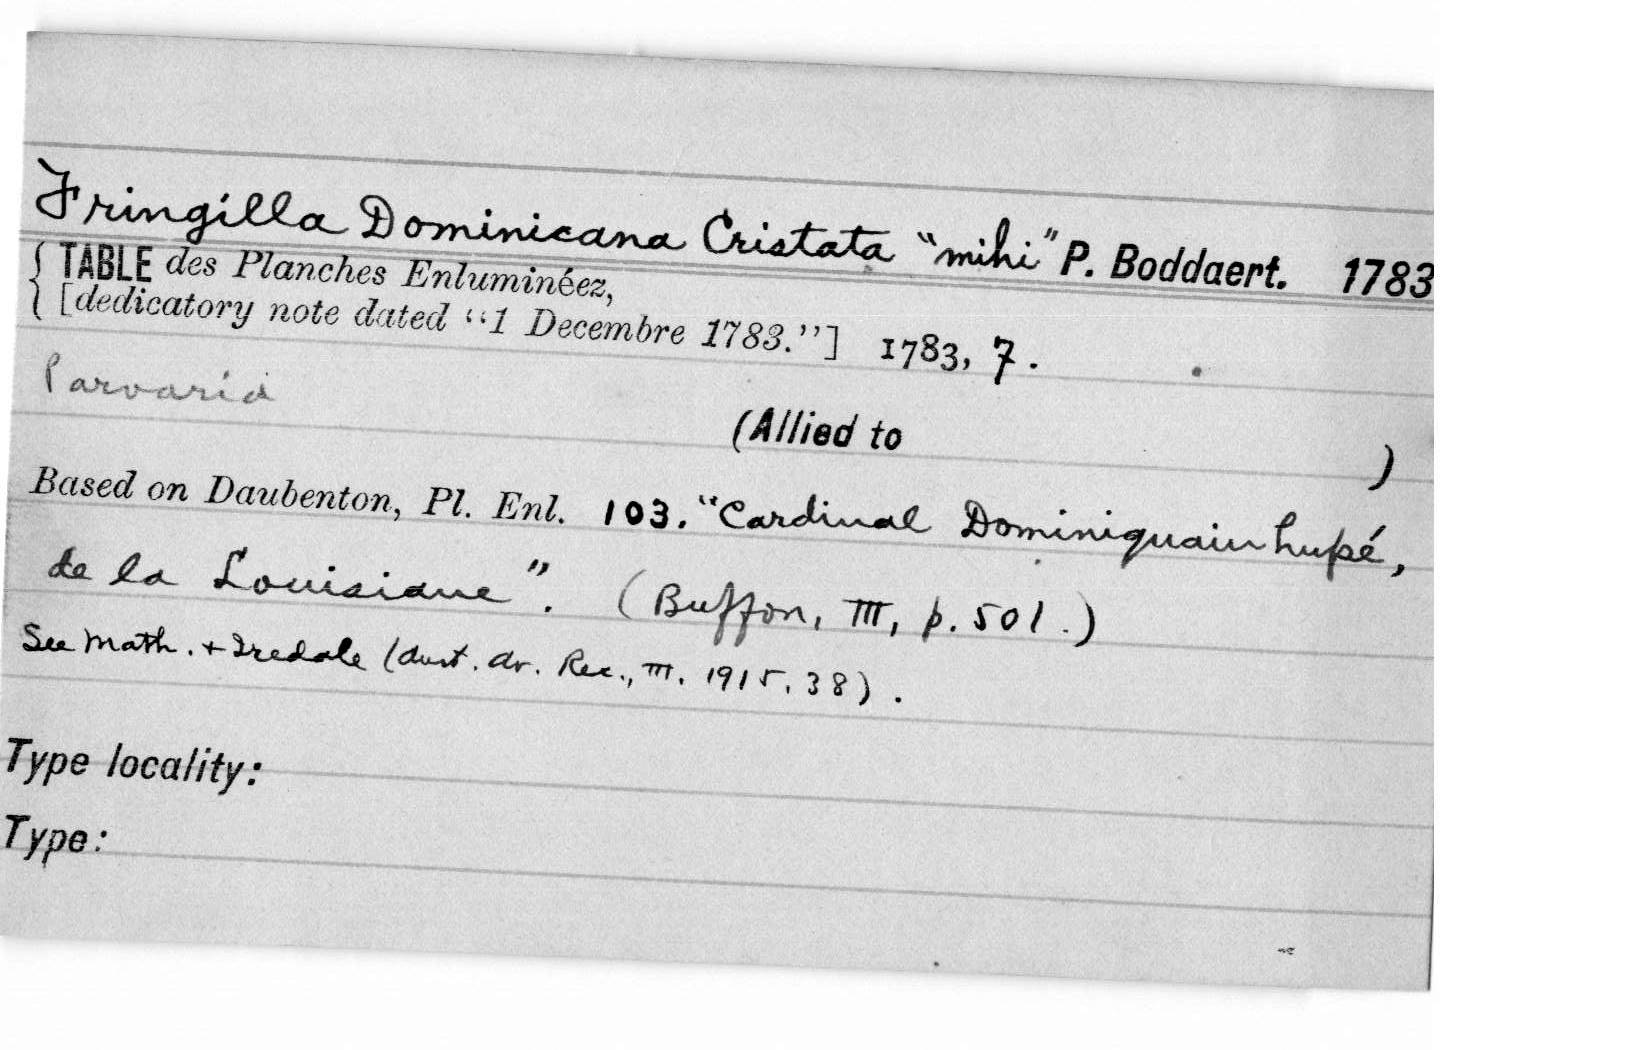 Fringilla Dominicana Cristata "mihi" P. Boddaert. 1783
TABLE des Planches Enluminéez,
[dedicatory note dated "1 Decembre 1783."] 1783, 7.
Paroaria
(Allied to )
Based on Daubenton, Pl. Enl. 103. "Cardinal Dominiquain hupé,
de la Louisiane". (Buffon, III, p. 501.)
See Math. + Iredale (Aust. Av. Rec., III. 1915. 38).
Type locality:
Type: